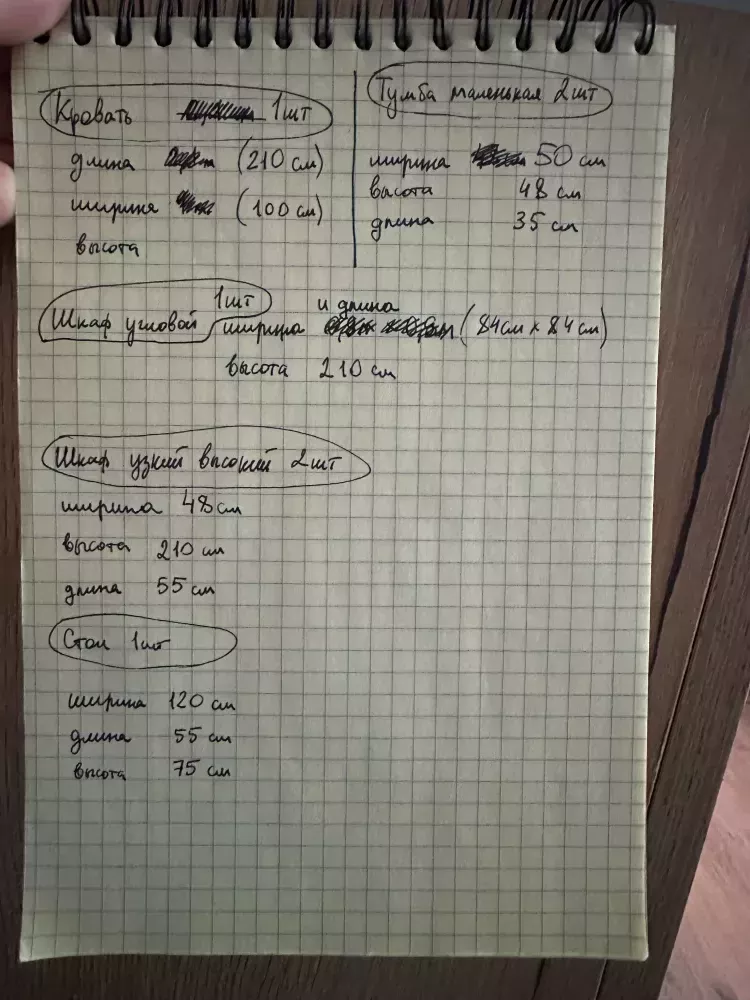 Кровать 1шт
длина (210 см)
ширина (100 см)
высота
Тумба маленькая 2шт
ширина 50 см
высота 48 см
длина 35 см
Шкаф угловой 1шт
и длина
ширина (84см x 84см)
высота 210 см
Шкаф узкий высокий 2шт
ширина 48 см
высота 210 см
длина 55 см
Стол 1шт
ширина 120 см
длина 55 см
высота 75 см